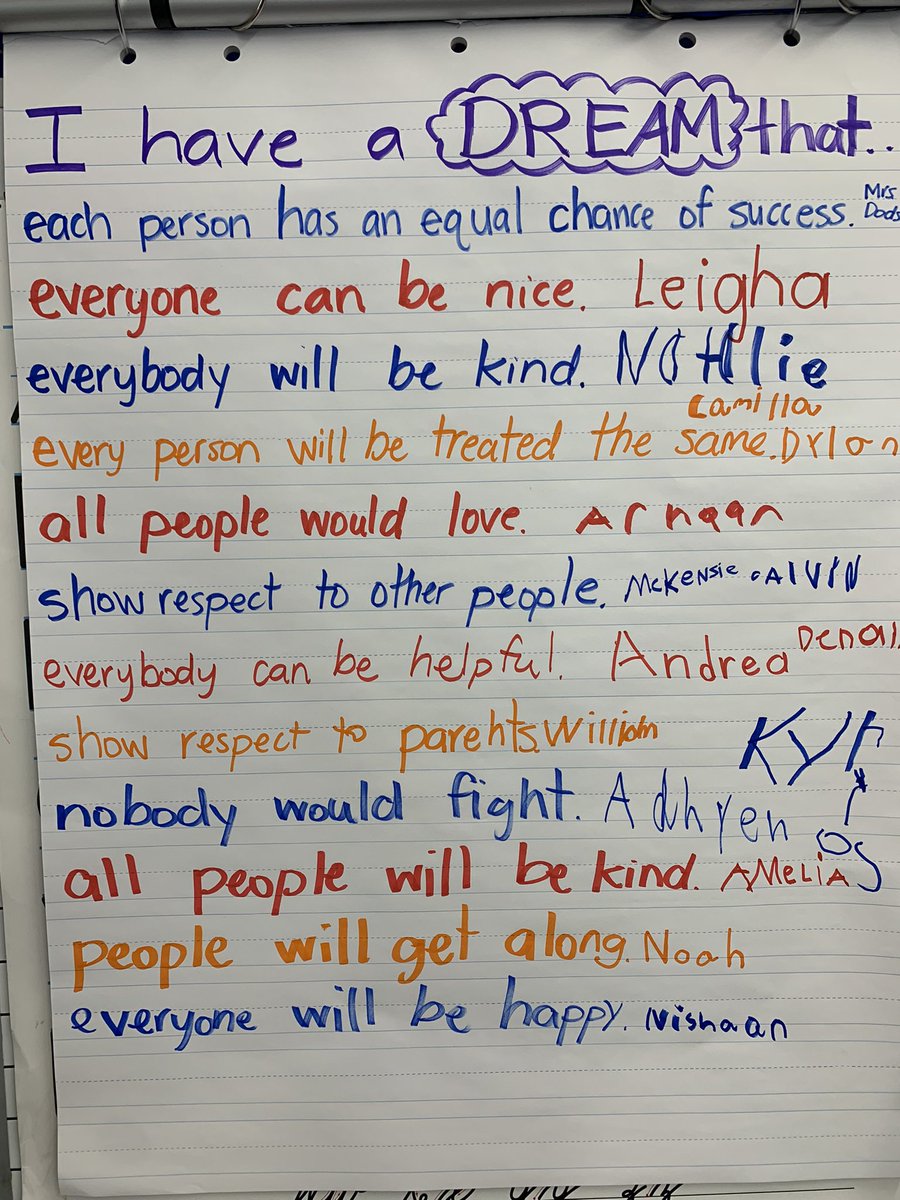 I have a DREAM that..
each person has an equal chance of success. Mrs Dods
everyone can be nice. Leigha
everybody will be kind. NOtHlie
Camilla
every person will be treated the same. Dylan
all people would love. Arnaan
show respect to other people. McKensie . AlVIN
everybody can be helpful. Andrea Denali
show respect to parents. William
nobody would fight. Adhyen
all people will be kind. AMeLiA
people will get along. Noah
everyone will be happy. Nishaan